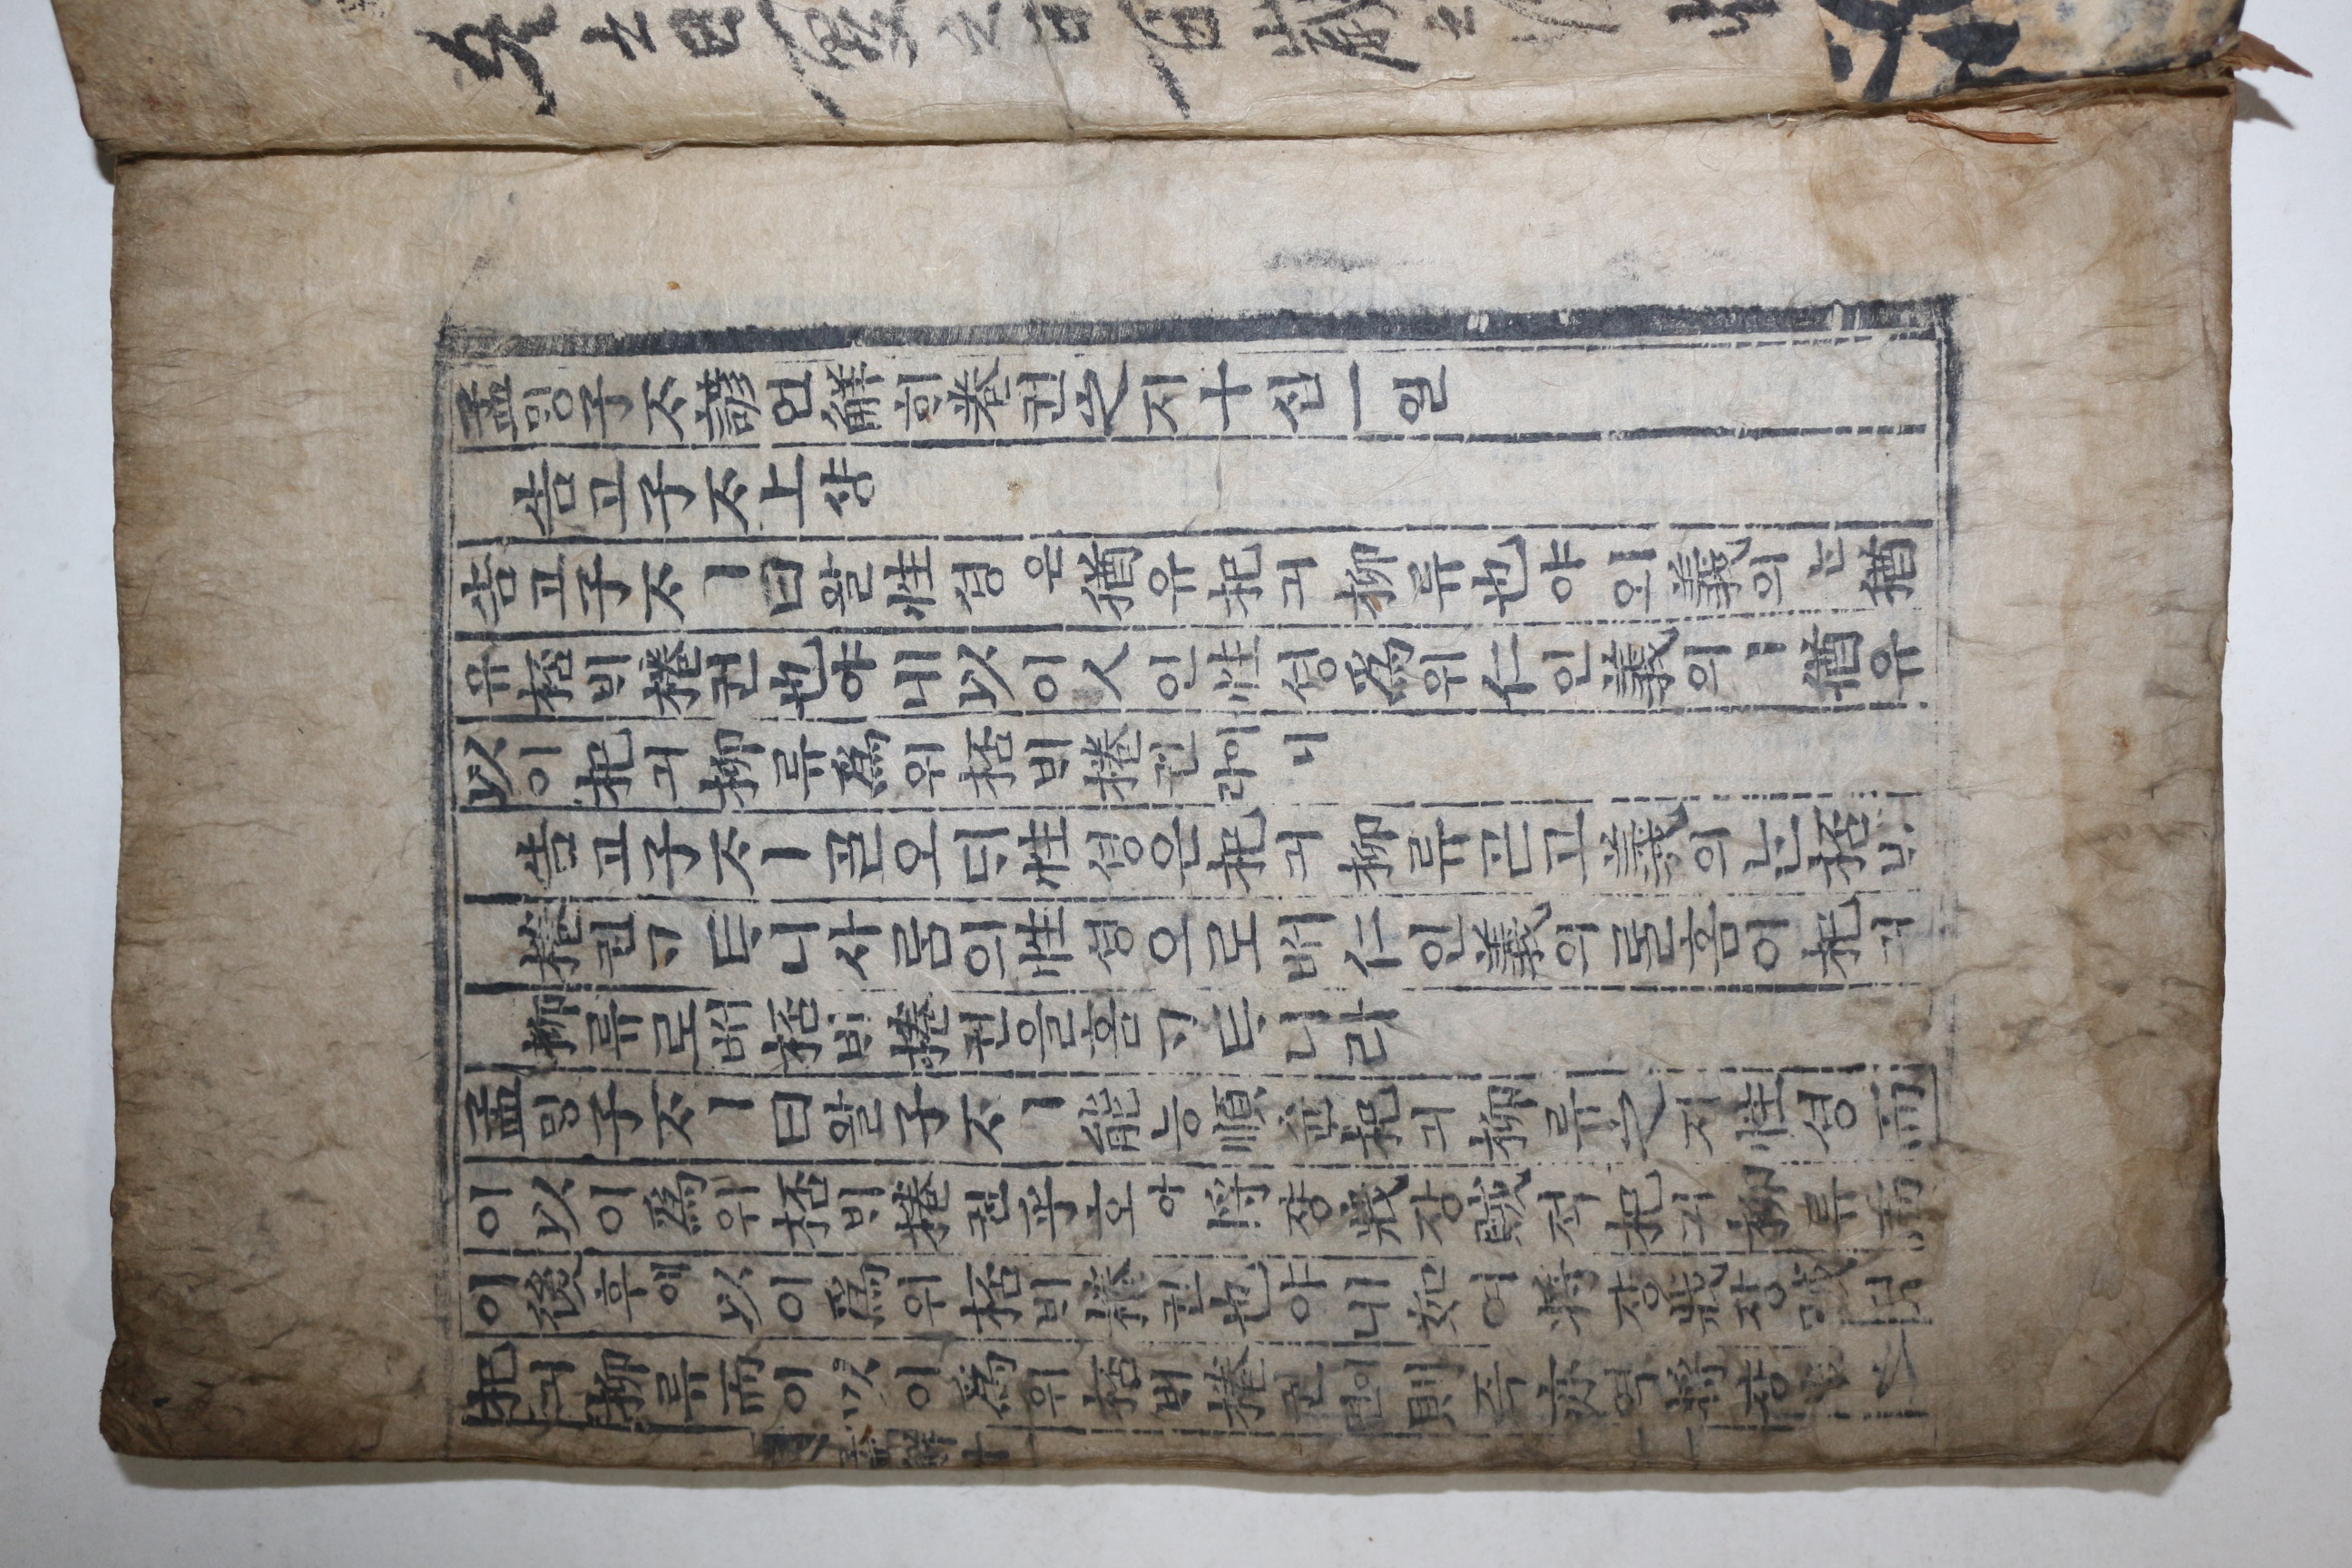 冬之日夏之日百歲之後
孟밍子ᄌᆞ諺언解ᄒᆡ卷권之지十십一일
告고子ᄌᆞ上샹
告고子ᄌᆞㅣ曰왈性셩은猶유杞긔柳류也야ㅣ오義의ᄂᆞᆫ猶
유桮ᄇᆡ棬권也야ㅣ니以이人인性셩爲위仁인義의ㅣ猶유
以이杞긔柳류爲위桮ᄇᆡ棬권이니라
告고子ᄌᆞㅣᄀᆞᆯ오ᄃᆡ性셩은杞긔柳류ᄀᆞᆮ고義의ᄂᆞᆫ桮ᄇᆡ
棬권ᄀᆞᄐᆞ니사ᄅᆞᆷ의性셩으로ᄡᅥ仁인義의ᄅᆞᆯ홈이杞긔
柳류로ᄡᅥ桮ᄇᆡ棬권을홈ᄀᆞᄐᆞ니라
孟밍子ᄌᆞㅣ曰왈子ᄌᆞㅣ能능順슌杞긔柳류之지性셩而
이以이爲위桮ᄇᆡ棬권乎호아將쟝戕장賊적杞긔柳류而
이後후에以이爲위桮ᄇᆡ棬권也야ㅣ니如여將쟝戕장賊적
杞긔柳류而이以이爲위桮ᄇᆡ棬권이면則즉亦역將쟝
孟解十一